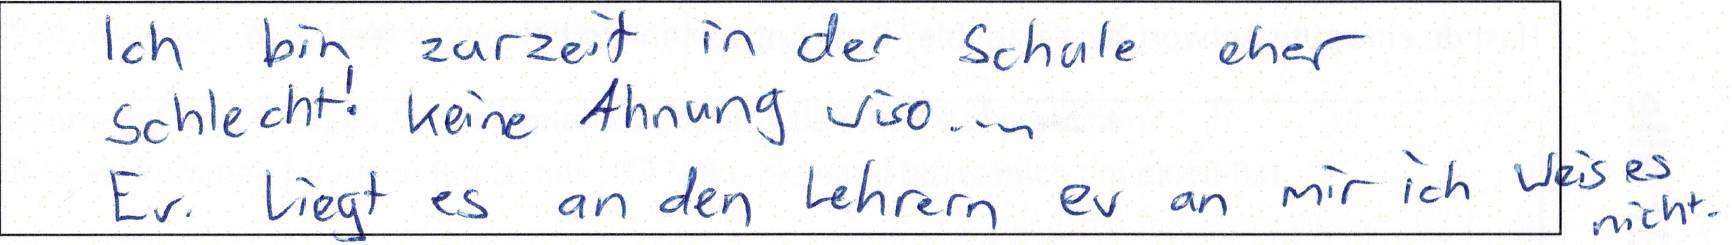 Ich bin zurzeit in der Schule eher
schlecht! keine Ahnung wiso...
Ev. liegt es an den Lehrern ev an mir ich weis es
nicht.